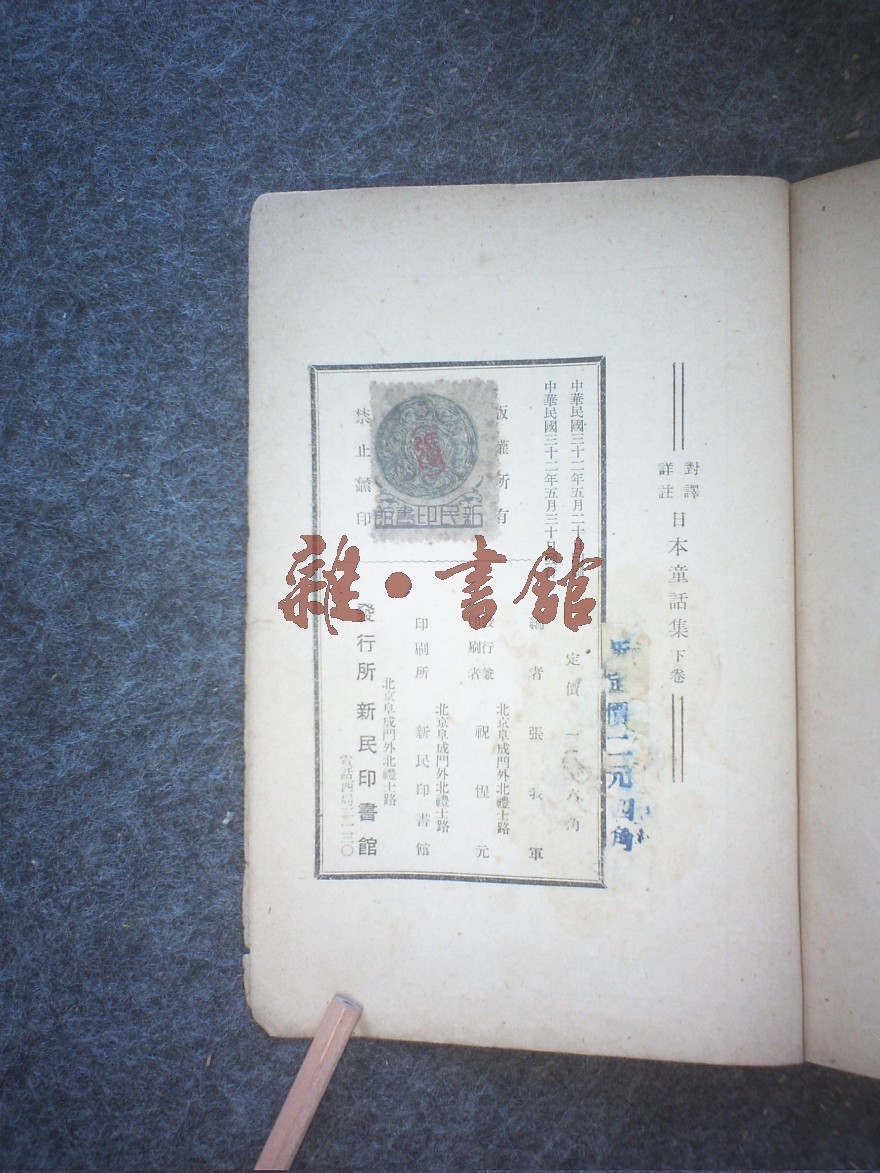 對譯
詳註
日本童話集 下卷
中華民國三十二年五月二十
中華民國三十二年五月三十日
版權所有
禁止飜印
新民印書館
雜·書館
定價 六角
編者 張我軍
發行兼
印刷者 祝惺元
北京阜成門外北禮士路
印刷所 新民印書館
北京阜成門外北禮士路
發行所 新民印書館
北京阜成門外北禮士路
電話西局二一三〇
新定價二元四角